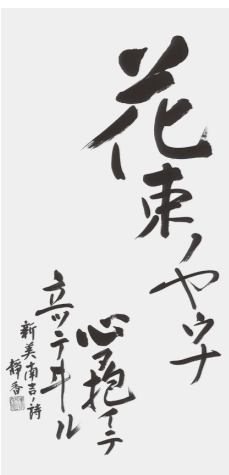 花束ノヤウナ
心ヲ抱イテ
立ッテヰル
新美南吉ノ詩
靜香